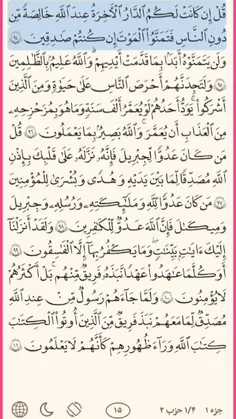 قُلْ إِن كَانَتْ لَكُمُ الدَّارُ الْآخِرَةُ عِندَ اللَّهِ خَالِصَةً مِّن
دُونِ النَّاسِ فَتَمَنَّوُا الْمَوْتَ إِن كُنتُمْ صَادِقِينَ ﴿٩٤﴾
وَلَن يَتَمَنَّوْهُ أَبَدًا بِمَا قَدَّمَتْ أَيْدِيهِمْ وَاللَّهُ عَلِيمٌ بِالظَّالِمِينَ
﴿٩٥﴾ وَلَتَجِدَنَّهُمْ أَحْرَصَ النَّاسِ عَلَىٰ حَيَاةٍ وَمِنَ الَّذِينَ
أَشْرَكُوا يَوَدُّ أَحَدُهُمْ لَوْ يُعَمَّرُ أَلْفَ سَنَةٍ وَمَا هُوَ بِمُزَحْزِحِهِ
مِنَ الْعَذَابِ أَن يُعَمَّرَ وَاللَّهُ بَصِيرٌ بِمَا يَعْمَلُونَ ﴿٩٦﴾ قُلْ
مَن كَانَ عَدُوًّا لِّجِبْرِيلَ فَإِنَّهُ نَزَّلَهُ عَلَىٰ قَلْبِكَ بِإِذْنِ
اللَّهِ مُصَدِّقًا لِّمَا بَيْنَ يَدَيْهِ وَهُدًى وَبُشْرَىٰ لِلْمُؤْمِنِينَ
﴿٩٧﴾ مَن كَانَ عَدُوًّا لِّلَّهِ وَمَلَائِكَتِهِ وَرُسُلِهِ وَجِبْرِيلَ
وَمِيكَالَ فَإِنَّ اللَّهَ عَدُوٌّ لِّلْكَافِرِينَ ﴿٩٨﴾ وَلَقَدْ أَنزَلْنَا
إِلَيْكَ آيَاتٍ بَيِّنَاتٍ وَمَا يَكْفُرُ بِهَا إِلَّا الْفَاسِقُونَ ﴿٩٩﴾
أَوَكُلَّمَا عَاهَدُوا عَهْدًا نَّبَذَهُ فَرِيقٌ مِّنْهُم بَلْ أَكْثَرُهُمْ
لَا يُؤْمِنُونَ ﴿١٠٠﴾ وَلَمَّا جَاءَهُمْ رَسُولٌ مِّنْ عِندِ اللَّهِ
مُصَدِّقٌ لِّمَا مَعَهُمْ نَبَذَ فَرِيقٌ مِّنَ الَّذِينَ أُوتُوا الْكِتَابَ
كِتَابَ اللَّهِ وَرَاءَ ظُهُورِهِمْ كَأَنَّهُمْ لَا يَعْلَمُونَ ﴿١٠١﴾
جزء ١ ١/٤ حزب ٢ ١٥